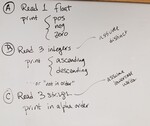 A Read 1 float
print { pos
neg
zero
B Read 3 integers
assume distinct
print { ascending
descending
or "not in order"
C Read 3 strings
assume lowercase
print in alpha order